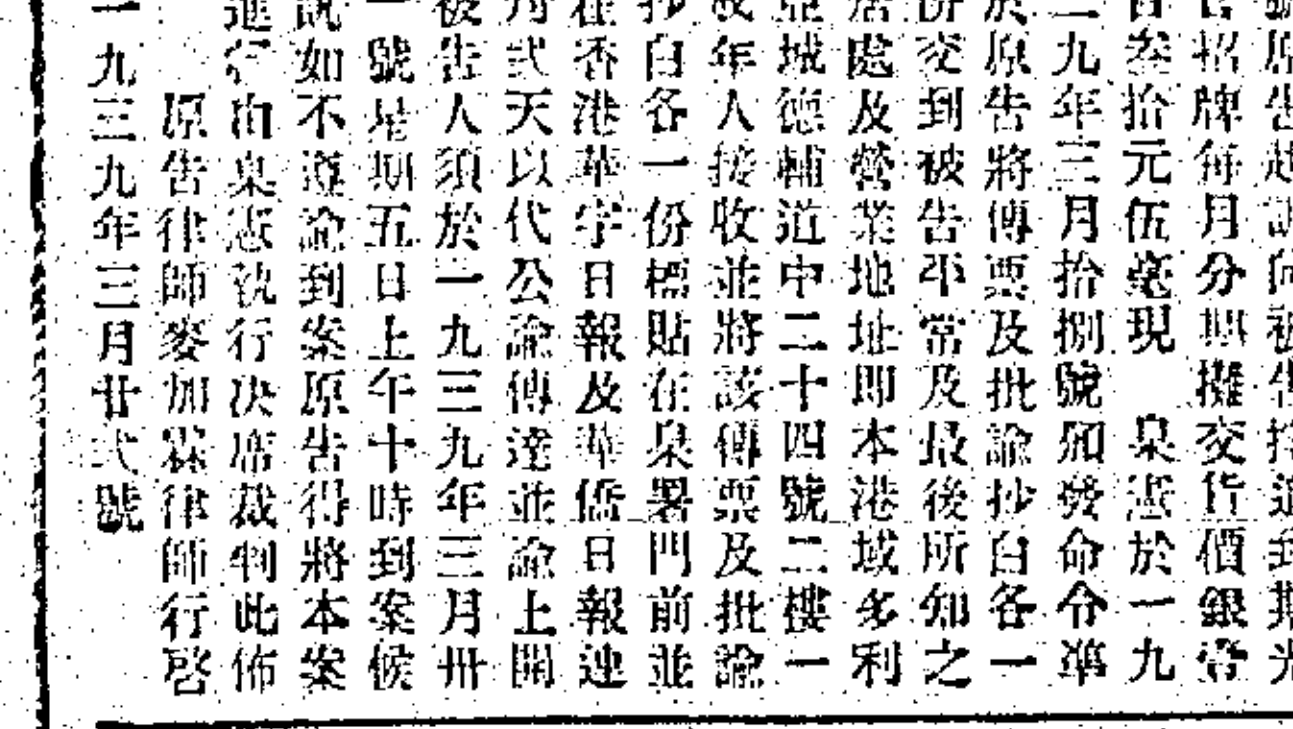 號原告起訴向被告按遁到期光
告招牌每月分期攤交貨價銀壹
百叁拾元伍毫現　臬憲於一九
三九年三月拾捌號頒發命令準
於原告將傳票及批諭抄白各一
份交到被告平常及最後所知之
居處及營業地址即本港域多利
亞城德輔道中二十四號二樓一
成年人接收並將該傳票及批諭
抄白各一份標貼在臬署門前並
在香港華字日報及華僑日報連
刋弍天以代公諭傳達並諭上開
被告人須於一九三九年三月卅
一號星期五日上午十時到案候
訊如不遵諭到案原告得將本案
進行由臬憲執行決席裁判此佈
原告律師麥加霖律師行啓
一九三九年三月廿弍號